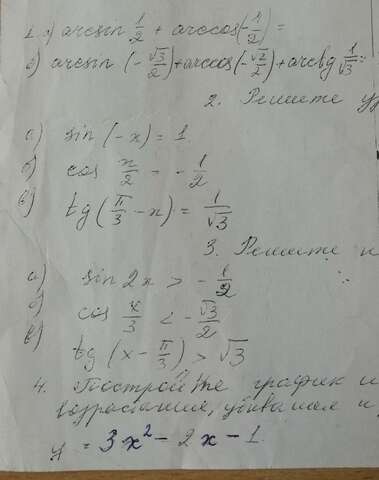 1. а) arcsin 1/2 + arccos(-1/2) =
б) arcsin (-√3/2) + arccos(-√2/2) + arctg 1/√3 =
2. Решите
а) sin (-x) = 1
б) cos x/2 = -1/2
в) tg (π/3 - x) = 1/√3
3. Решите
а) sin 2x > -1/2
б) cos x/3 < -√3/2
в) tg (x - π/3) > √3
4. Постройте график и
возрастания, убывания и
y = 3x² - 2x - 1